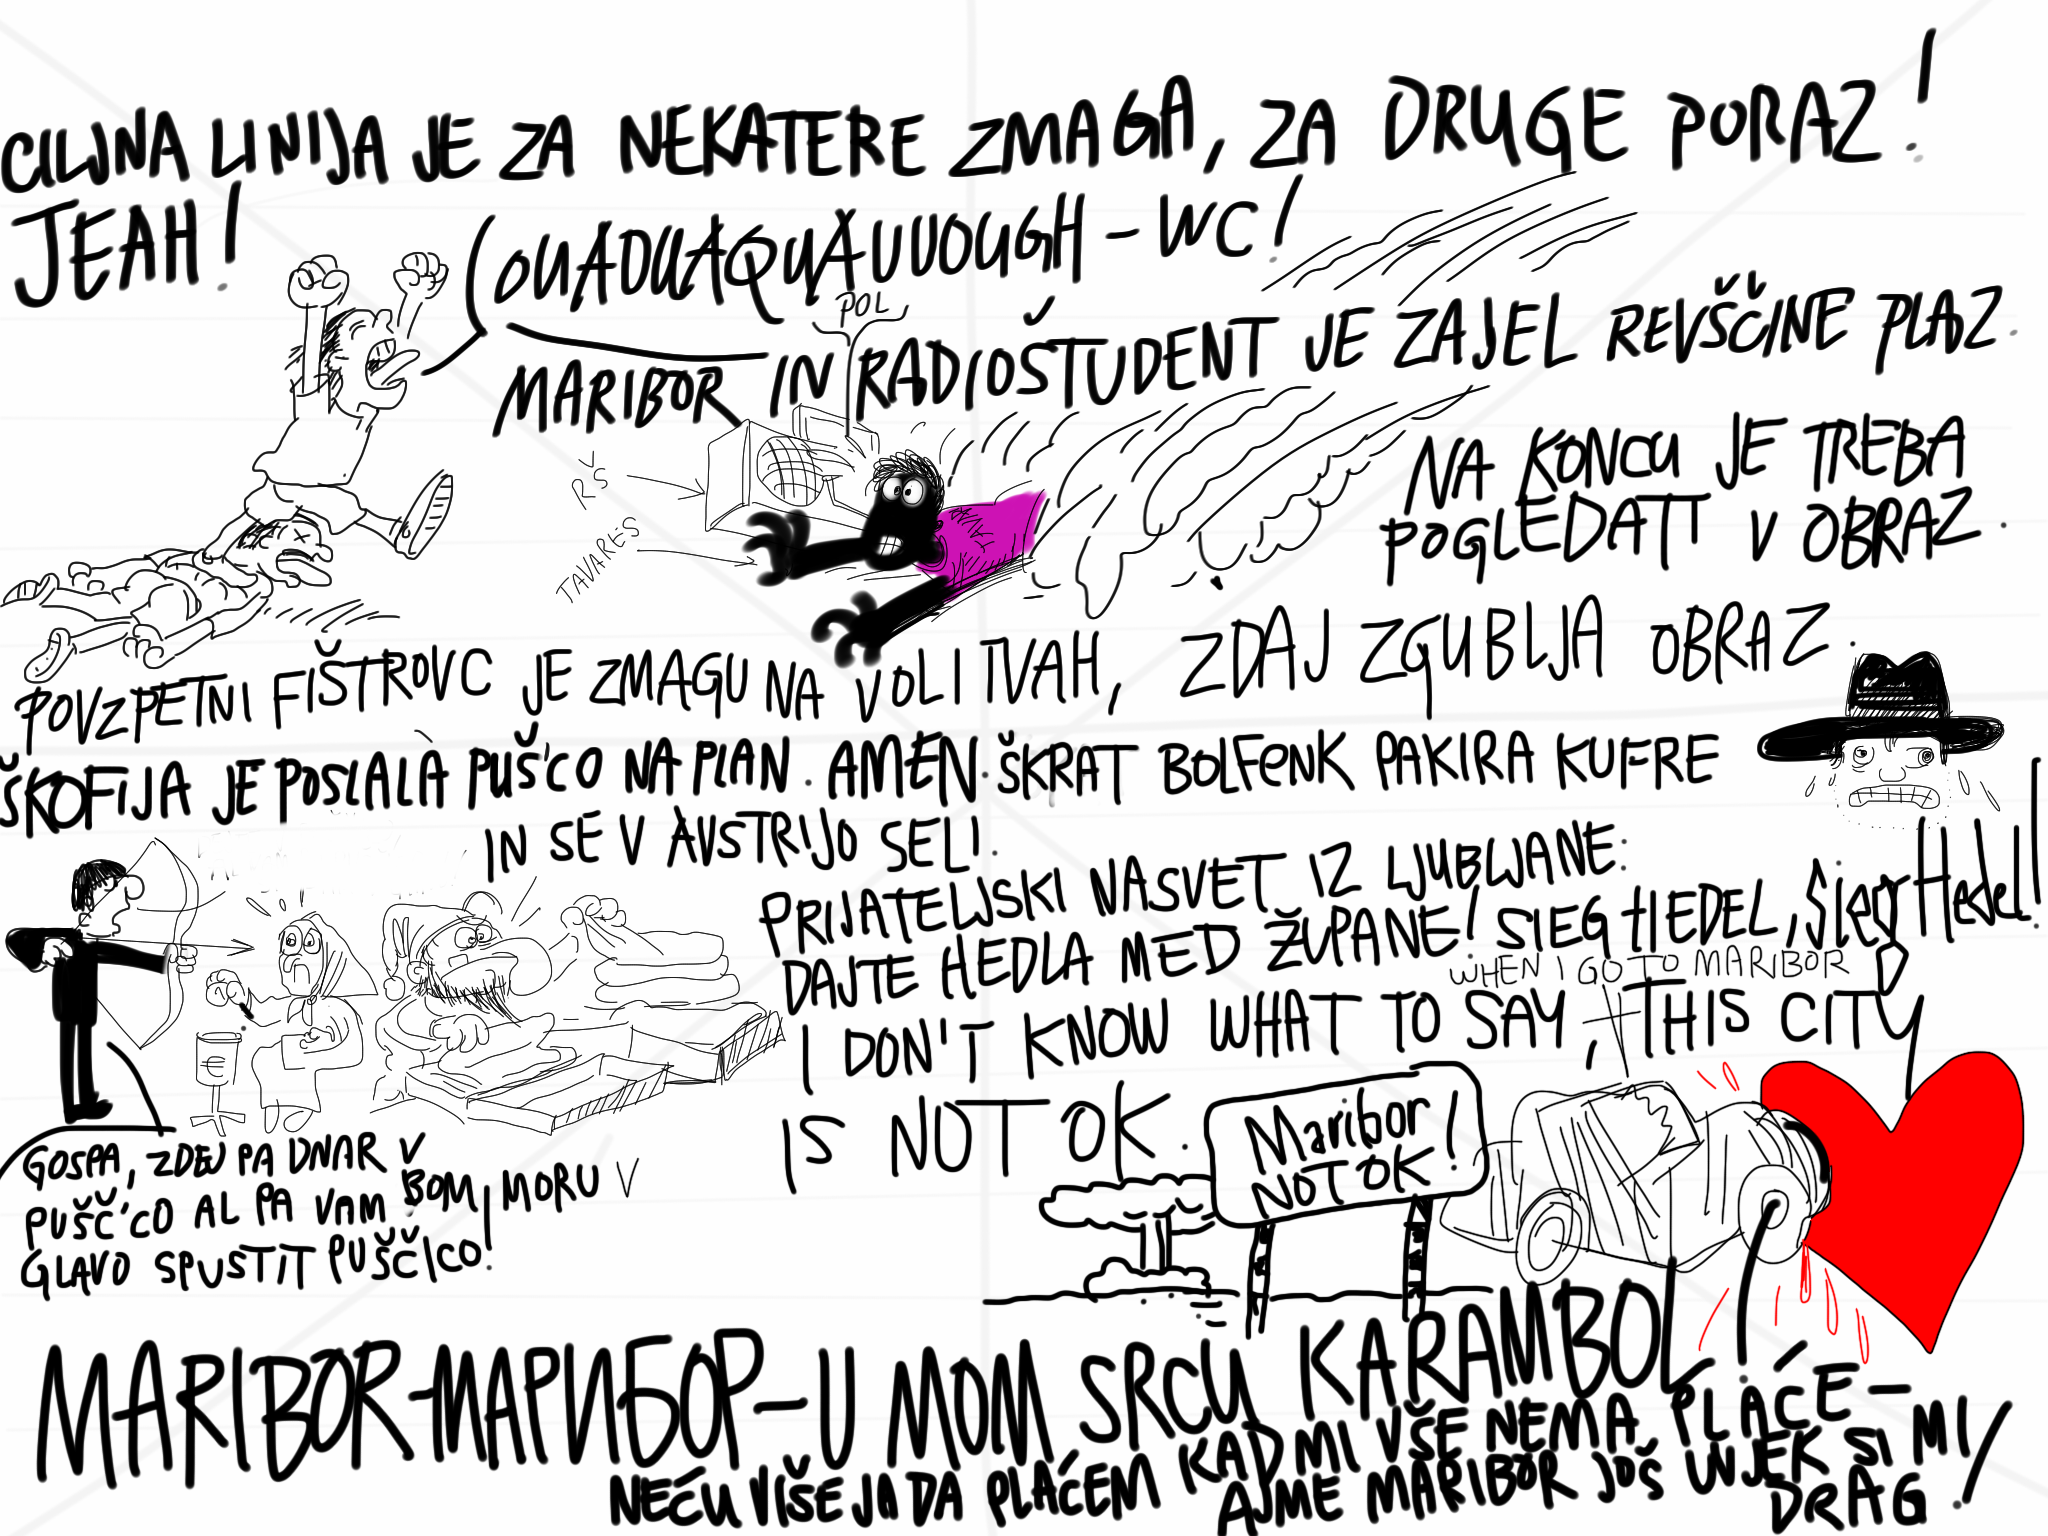 CILJNA LINIJA JE ZA NEKATERE ZMAGA, ZA DRUGE PORAZ!
JEAH!
OUADUAQUAUUUOUGH - WC!
POL
MARIBOR IN RADIOŠTUDENT JE ZAJEL REVŠČINE PLAZ.
RŠ
TAVARES
NA KONCU JE TREBA
POGLEDATI V OBRAZ.
POVZPETNI FIŠTROVC JE ZMAGU NA VOLITVAH, ZDAJ ZGUBLJA OBRAZ.
ŠKOFIJA JE POSLALA PUŠ'CO NA PLAN. AMEN. ŠKRAT BOLFENK PAKIRA KUFRE
IN SE V AVSTRIJO SELI.
PRIJATELJSKI NASVET IZ LJUBLJANE:
DAJTE HEDLA MED ŽUPANE! SIEG HEDEL, Sieg Hedel!
WHEN I GO TO MARIBOR
I DON'T KNOW WHAT TO SAY, THIS CITY
IS NOT OK.
€
Maribor
NOT OK!
GOSPA, ZDEJ PA DNAR V
PUŠČ'CO AL PA VAM BOM MORU V
GLAVO SPUSTIT PUŠČICO!
MARIBOR-МАРИБОР-U MOM SRCU KARAMBOL.
NEĆU VIŠE JA DA PLAĆEM KAD MI VŠE NEMA PLAĆE-
AJME MARIBOR JOŠ UVJEK SI MI
DRAG!